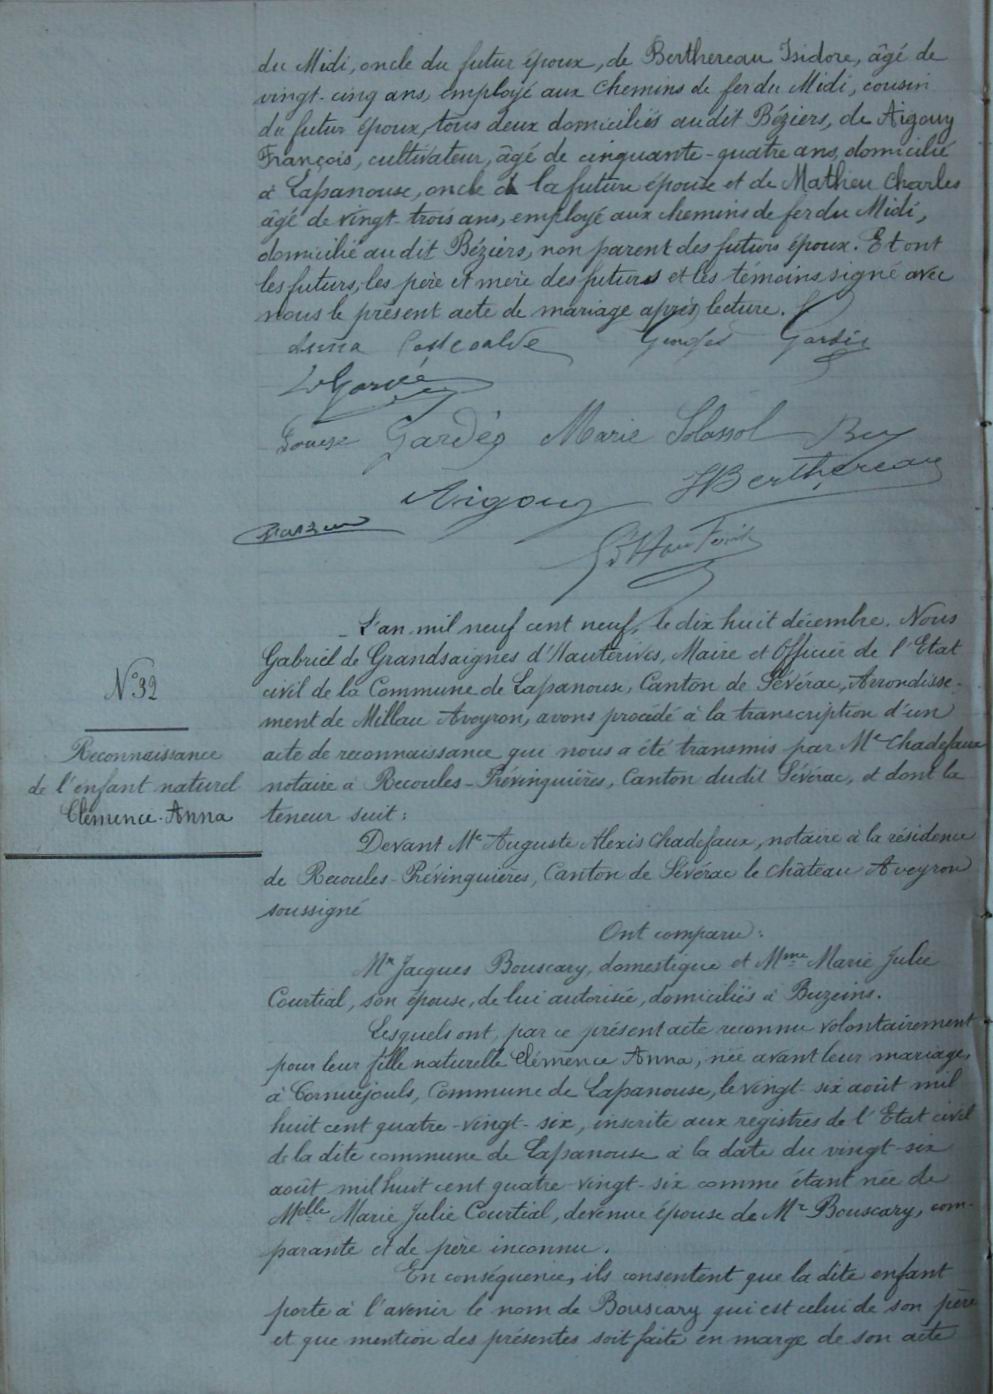 du Midi, oncle du futur époux, de Berthereau Isidore, âgé de
vingt-cinq ans, employé aux chemins de fer du Midi, cousin
du futur époux, tous deux domiciliés audit Béziers, de Aigouy
François, cultivateur, âgé de cinquante-quatre ans, domicilié
à Lapanouse, oncle de la future épouse et de Mathieu Charles
âgé de vingt-trois ans, employé aux chemins de fer du Midi,
domicilié au dit Béziers, non parent des futurs époux. Et ont
les futurs, les père et mère des futurs et les témoins signé avec
nous le présent acte de mariage après lecture.
Georges
Louise Gardès Marie Solassol
Aigouy Berthereau
L'an mil neuf cent neuf, le dix huit décembre. Nous
Gabriel de Grandsaignes d'Hauterives, Maire et Officier de l'Etat
civil de la Commune de Lapanouse, Canton de Sévérac, Arrondisse-
ment de Millau Aveyron, avons procédé à la transcription d'un
acte de reconnaissance qui nous a été transmis par Me Chadefaux
notaire à Recoules-Prévinquières, Canton dudit Sévérac, et dont la
teneur suit :
N° 32
Reconnaissance
de l'enfant naturel
Clémence-Anna
Devant Me Auguste Alexis Chadefaux, notaire à la résidence
de Recoules-Prévinquières, Canton de Sévérac le Château Aveyron
soussigné
Ont comparu :
Mr Jacques Bouscary, domestique et Mme Marie Julie
Courtial, son épouse, de lui autorisée, domiciliés à Buzeins.
Lesquels ont, par ce présent acte reconnu volontairement
pour leur fille naturelle Clémence Anna, née avant leur mariage,
à Cornuéjouls, Commune de Lapanouse, le vingt-six août mil
huit cent quatre-vingt-six, inscrite aux registres de l'Etat civil
de la dite commune de Lapanouse à la date du vingt-six
août mil huit cent quatre-vingt-six comme étant née de
Melle Marie Julie Courtial, devenue épouse de Mr Bouscary, com-
parante et de père inconnu.
En conséquence, ils consentent que la dite enfant
porte à l'avenir le nom de Bouscary qui est celui de son père
et que mention des présentes soit faite en marge de son acte